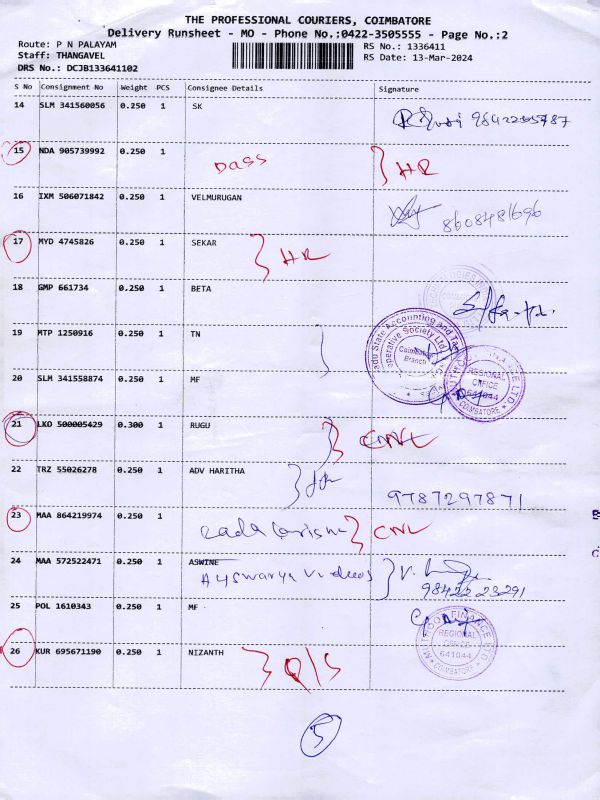 THE PROFESSIONAL COURIERS, COIMBATORE
Delivery Runsheet - MO - Phone No.:0422-3505555 - Page No.:2
Route: P N PALAYAM
RS No.: 1336411
Staff: THANGAVEL
RS Date: 13-Mar-2024
DRS No.: DCJB133641102
S No Consignment No Weight PCS Consignee Details Signature
14 SLM 341560056 0.250 1 SK
15 NDA 905739992 0.250 1 Dass HR
16 IXM 506071842 0.250 1 VELMURUGAN
8608481696
17 MYD 4745826 0.250 1 SEKAR HR
18 GMP 661734 0.250 1 BETA
19 MTP 1250916 0.250 1 TN
Coimbatore Branch
20 SLM 341558874 0.250 1 MF
REGIONAL OFFICE 641044 COIMBATORE
21 LKO 500005429 0.300 1 RUGU CNL
22 TRZ 55026278 0.250 1 ADV HARITHA
9787297871
23 MAA 864219974 0.250 1 CNL
24 MAA 572522471 0.250 1 ASWINE
Ayswarya Videos
98422 23291
25 POL 1610343 0.250 1 MF
REGIONAL OFFICE 641044 COIMBATORE
26 KUR 695671190 0.250 1 NIZANTH O/S
5